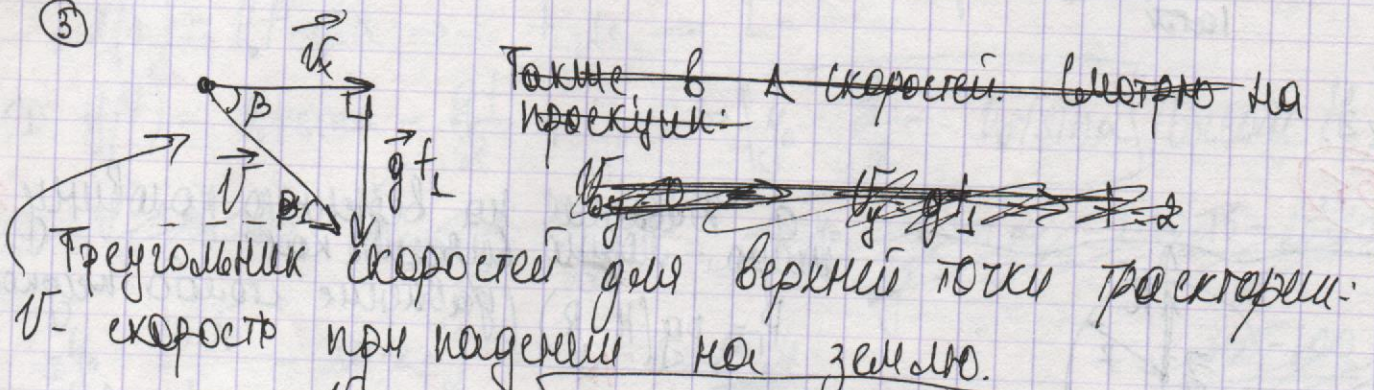 5
Vx
Также в Δ скоростей. Смотрю на
проекции:
β
V
g t1
Треугольник скоростей для верхней точки траектории:
V - скорость при падении на землю.